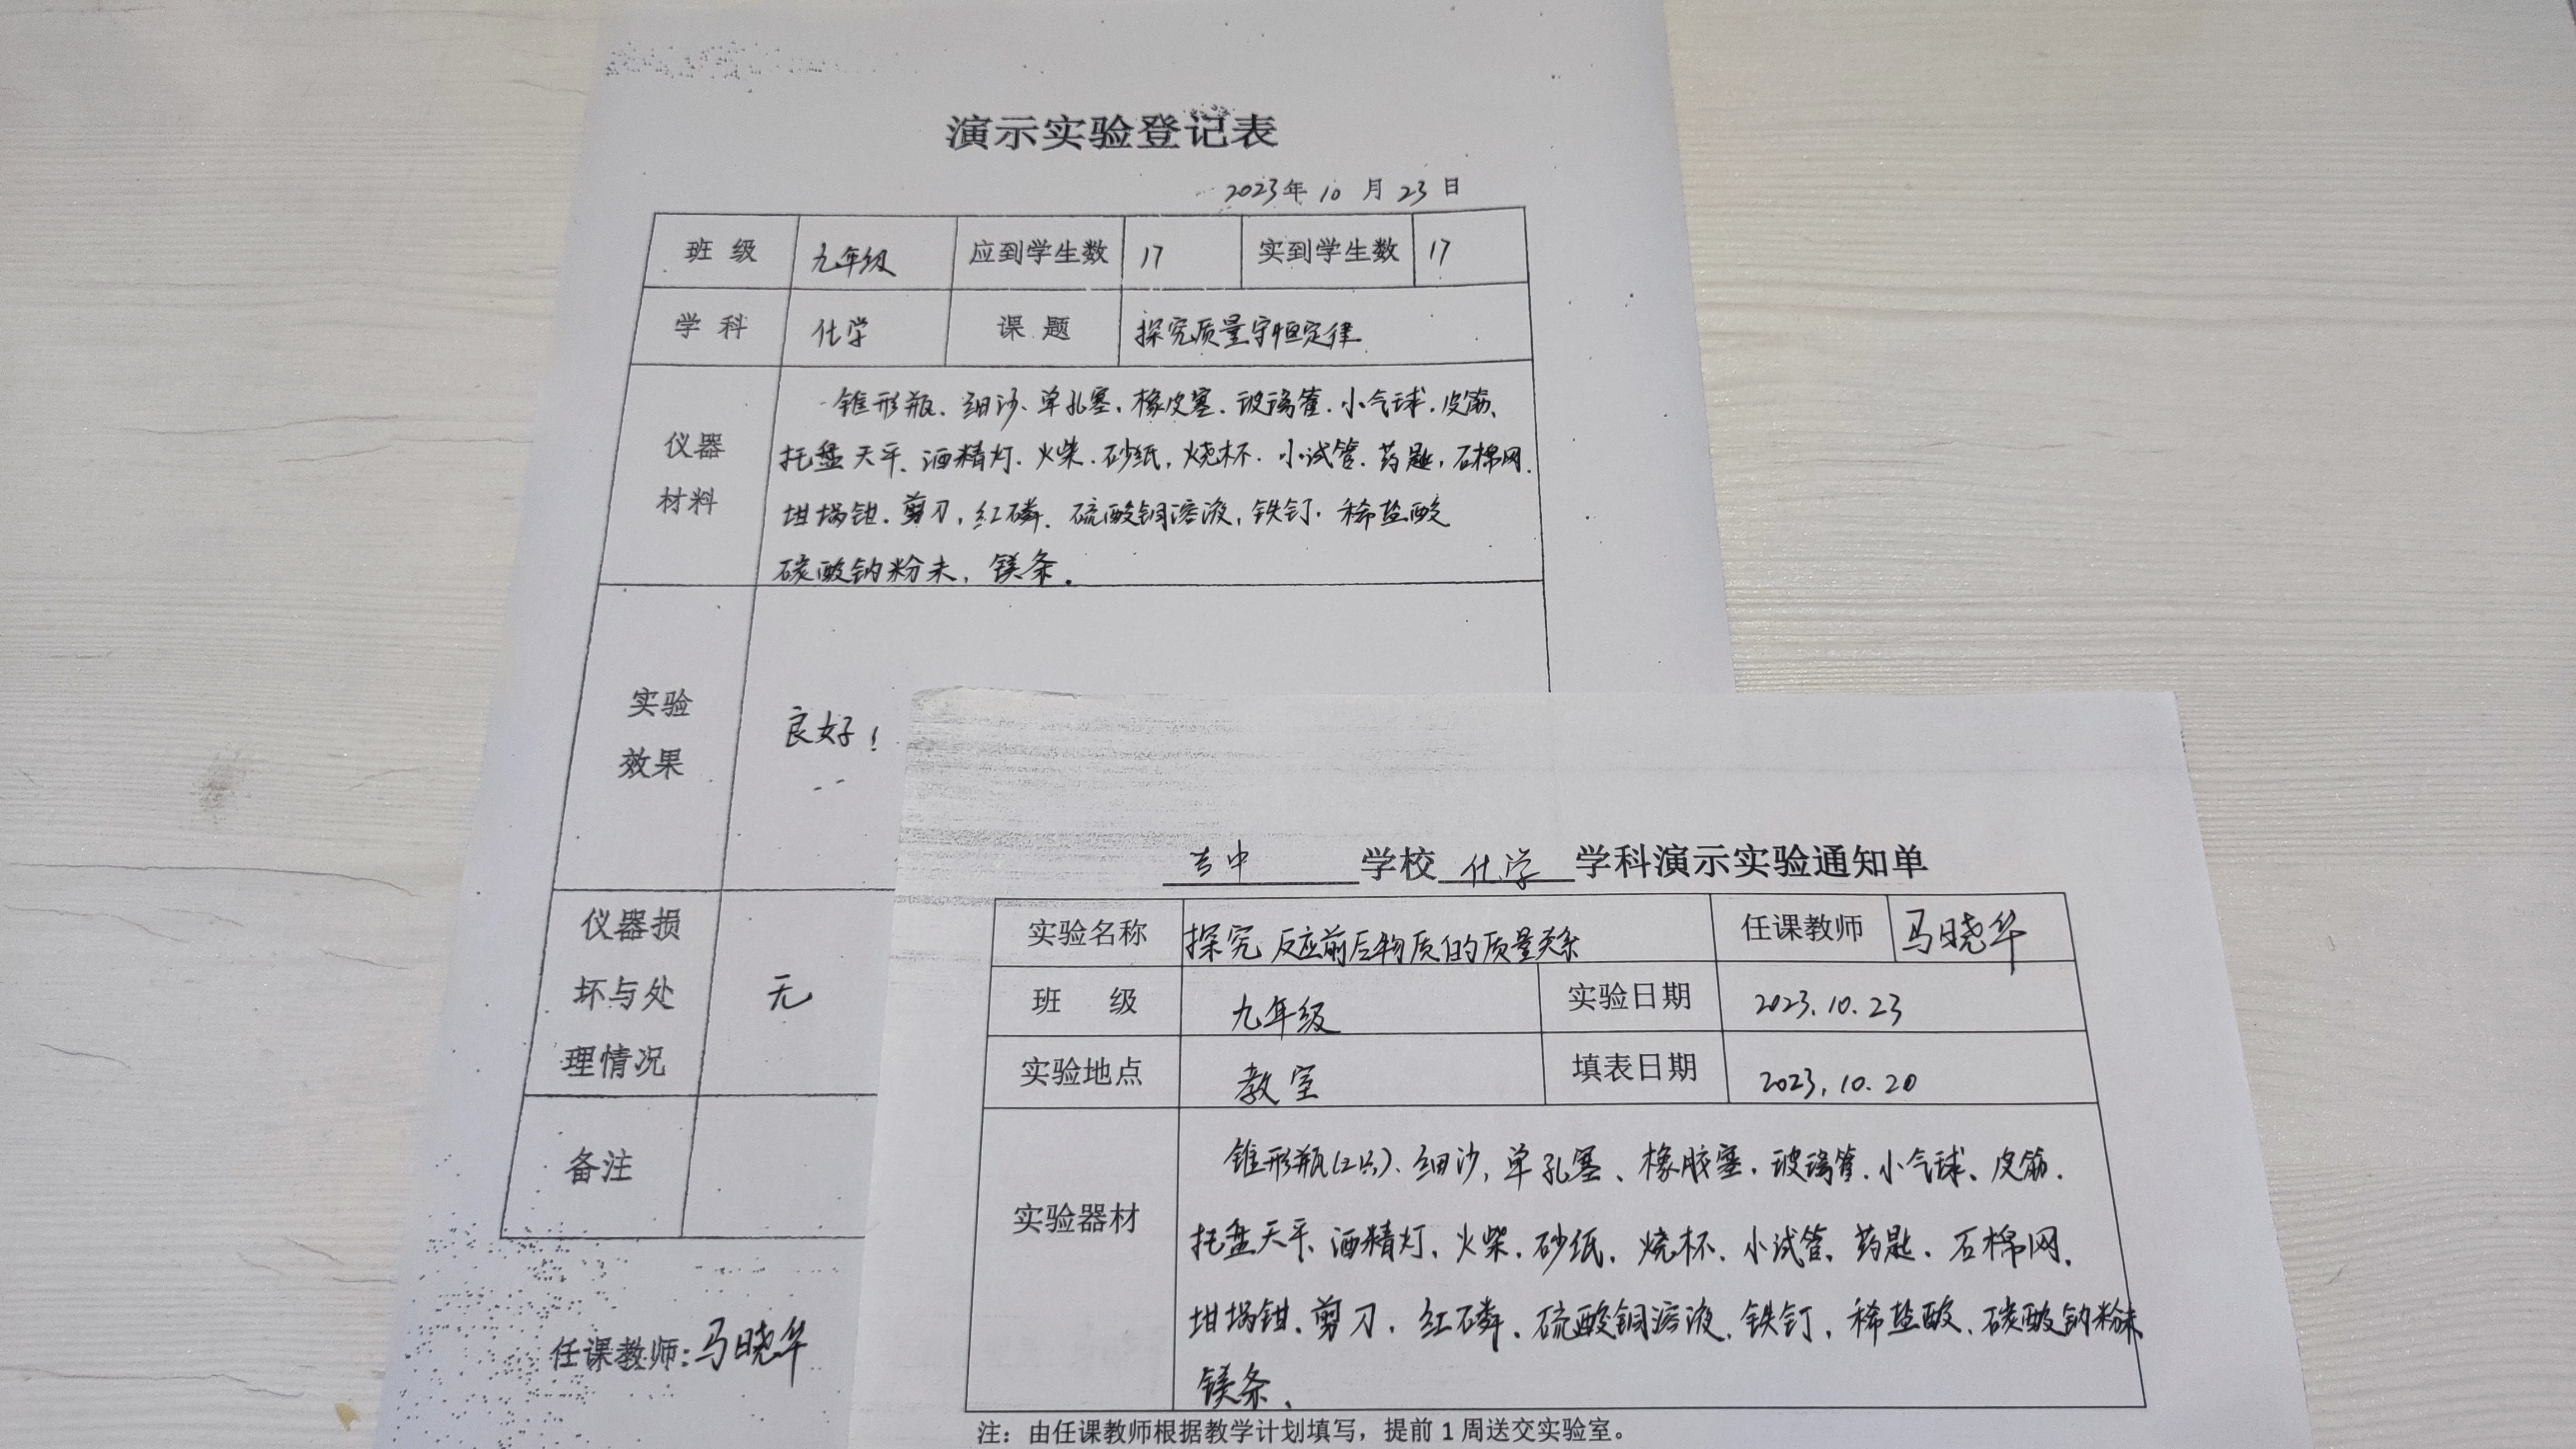 演示实验登记表
2023年 10 月 23 日
班 级 九年级 应到学生数 17 实到学生数 17
学 科 化学 课 题 探究质量守恒定律
仪器
材料
锥形瓶、细沙、单孔塞、橡皮塞、玻璃管、小气球、皮筋、
托盘天平、酒精灯、火柴、砂纸、烧杯、小试管、药匙、石棉网、
坩埚钳、剪刀、红磷、硫酸铜溶液、铁钉、稀盐酸
碳酸钠粉末、镁条。
实验
效果
良好！
仪器损
坏与处
理情况
无
备注
任课教师：马晓华
学校 化学 学科演示实验通知单
实验名称 探究反应前后物质的质量关系 任课教师 马晓华
班 级 九年级 实验日期 2023.10.23
实验地点 教室 填表日期 2023.10.20
实验器材
锥形瓶(2只)、细沙、单孔塞、橡胶塞、玻璃管、小气球、皮筋、
托盘天平、酒精灯、火柴、砂纸、烧杯、小试管、药匙、石棉网、
坩埚钳、剪刀、红磷、硫酸铜溶液、铁钉、稀盐酸、碳酸钠粉末
镁条、
注：由任课教师根据教学计划填写，提前 1 周送交实验室。